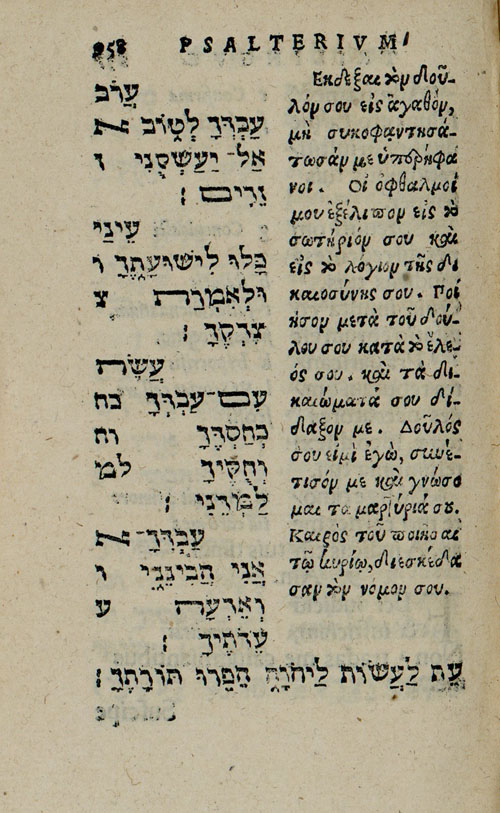 PSALTERIVM
עֲרֹב
עַבְדְּךָ לְטוֹב א
אַל־יַעַשְׁקֻנִי ז
זֵדִים׃
עֵינַי
כָּלוּ לִישׁוּעָתֶךָ ו
וּלְאִמְרַת צ
צִדְקֶךָ׃
עֲשֵׂה
עִם־עַבְדְּךָ כח
כְחַסְדֶּךָ וח
וְחֻקֶּיךָ למ
לַמְּדֵנִי׃
עַבְדְּךָ־א
אָנִי הֲבִינֵנִי ו
וְאֵדְעָה ע
עֵדֹתֶיךָ׃
Εκδεξαι τὸν δοῦ-
λόν σου εἰς ἀγαθόν,
μὴ συκοφαντησά-
τωσάν με ὑπερήφα
νοι. Οἱ ὀφθαλμοί
μου ἐξέλιπον εἰς τὸ
σωτήριόν σου καὶ
εἰς τὸ λόγιον τῆς δι
καιοσύνης σου. Ποί
ησον μετὰ τοῦ δού-
λου σου κατὰ τὸ ἔλε-
ός σου. καὶ τὰ δι-
καιώματά σου δί-
δαξον με. Δοῦλός
σου εἰμὶ ἐγώ, συνέ-
τισόν με καὶ γνώσο
μαι τα μαρτύριά σου.
Καιρὸς τοῦ ποιῆσαι
τῷ κυρίῳ, διεσκέδα
σαν τὸν νομον σου.
עֵת לַעֲשׂוֹת לַיהוָה הֵפֵרוּ תּוֹרָתֶךָ׃